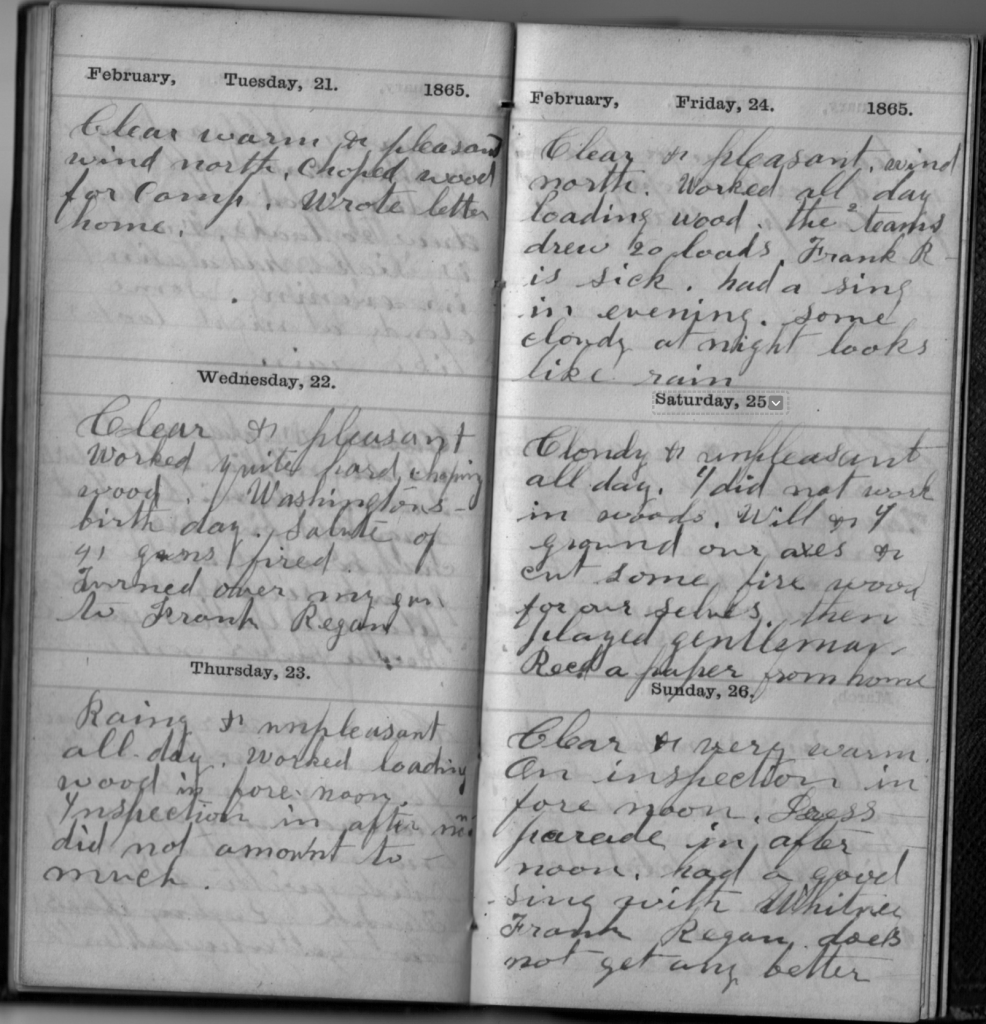 February, Tuesday, 21. 1865.
Clear warm & pleasant
wind north, choped wood
for Camp. Wrote letter
home.
Wednesday, 22.
Clear & pleasant
Worked quite hard choping
wood. Washingtons
birth day. Salute of
guns fired.
Turned over my gun
to Frank Regan
Thursday, 23.
Rainy & unpleasant
all day. Worked loading
wood in fore noon.
Inspection in after
did not amount to
much.
February, Friday, 24. 1865.
Clear & pleasant. wind
north. Worked all day
loading wood. the 2 teams
drew 20 loads. Frank R
is sick. had a sing
in evening. some
cloudy at night looks
like rain
Saturday, 25
Cloudy & unpleasant
all day. I did not work
in woods. Will & I
ground our axes &
cut some fire wood
for our selves. then
played gentleman.
Recd a paper from home
Sunday, 26.
Clear & very warm.
On inspection in
fore noon. Dress
parade in after
noon. had a good
sing with Whitney
Frank Regan does
not get any better